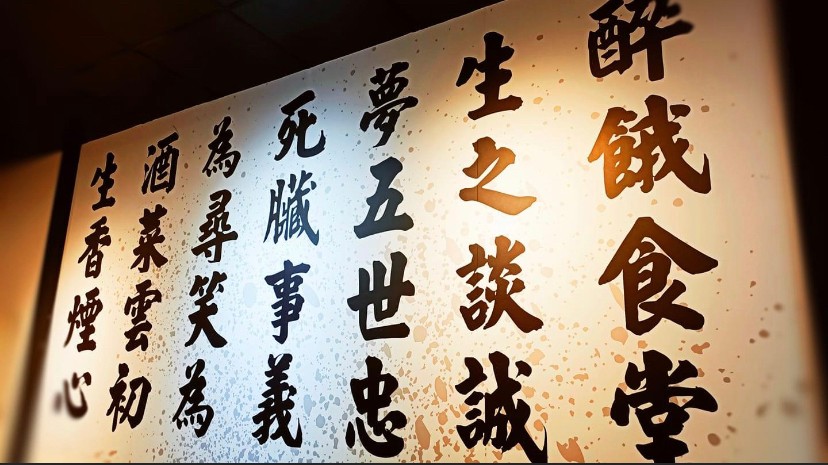 醉餓食堂
生之談誠
夢五世忠
死臟事義
為尋笑為
酒菜雲初
生香煙心